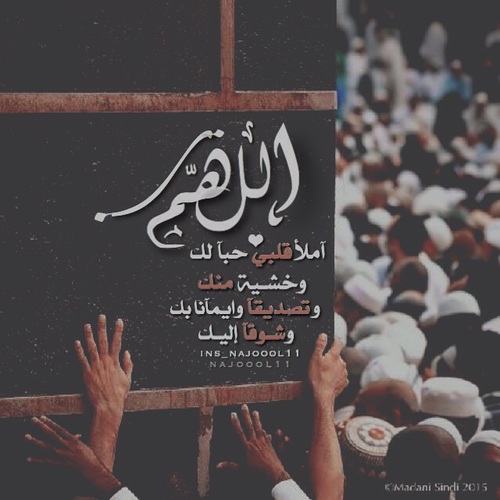 اللهم
آملأ قلبي حبآ لك
وخشية منك
وتصديقآ وايمآنا بك
وشوقآ إليك
INS_NAJOOOL11
NAJOOOL11
©Madani Sindi 2015